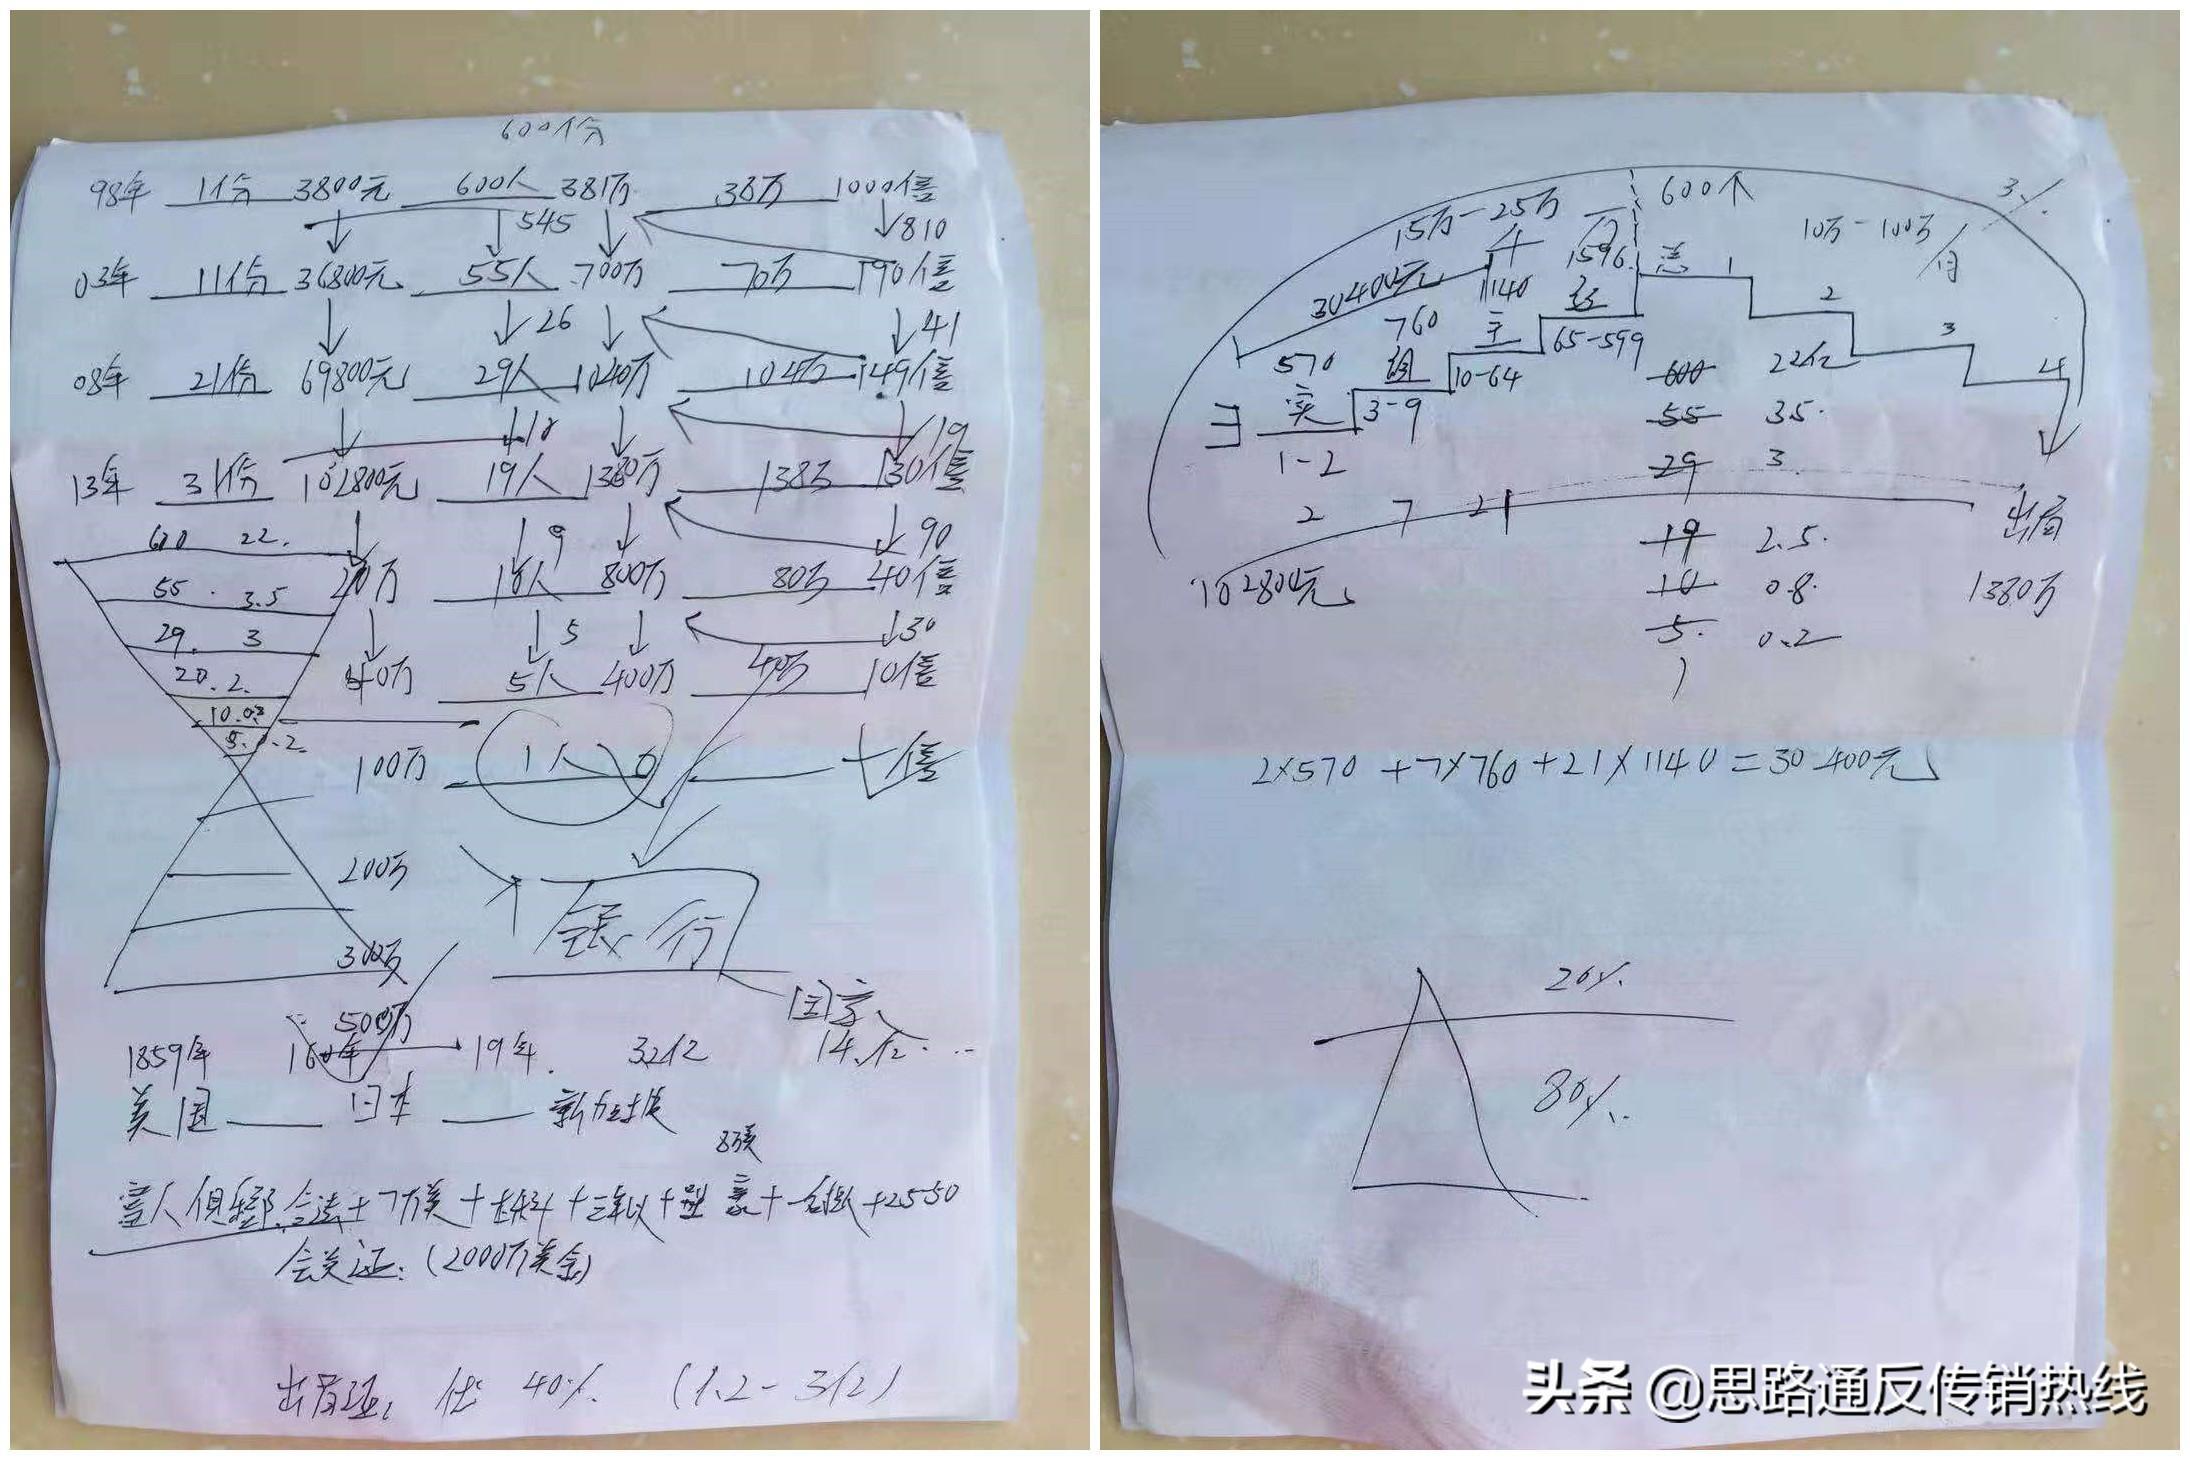 600份
98年 1份 3800元 600人 381万 38万 1000倍
545 810
03年 11份 36800元 55人 700万 70万 190倍
26 41
08年 21份 69800元 29人 1040万 104万 149倍
10 19
13年 31份 102800元 19人 1380万 138万 130倍
600 22. 9 90
55. 3.5 20万 10人 800万 80万 40倍
29. 3 5 30
20. 2. 40万 5人 400万 40万 10倍
10. 0.8
5. 0.2.
100万 1人 倍
200万
银行
300万
500万 国家
1859年 160年 19年. 32亿 14.亿...
美国 日本 新加坡
8万美
富人俱乐部.合法+7万美+ + + + + +2550
会员证:(2000万美金)
出局证: 优 40% (1.2-3亿)
600个 3%
15万-25万 10万-100万/月
30400元 1140 1596. 总 1
2
760 主 经 3
570 组 10-64 65-599 600 22亿 4
实 3-9 55 3.5.
1-2 29 3.
2 7 21 出局
19 2.5.
102800元 10 0.8. 1380万
5. 0.2
2×570+7×760+21×1140=30400元
20%
80%
头条 @思路通反传销热线